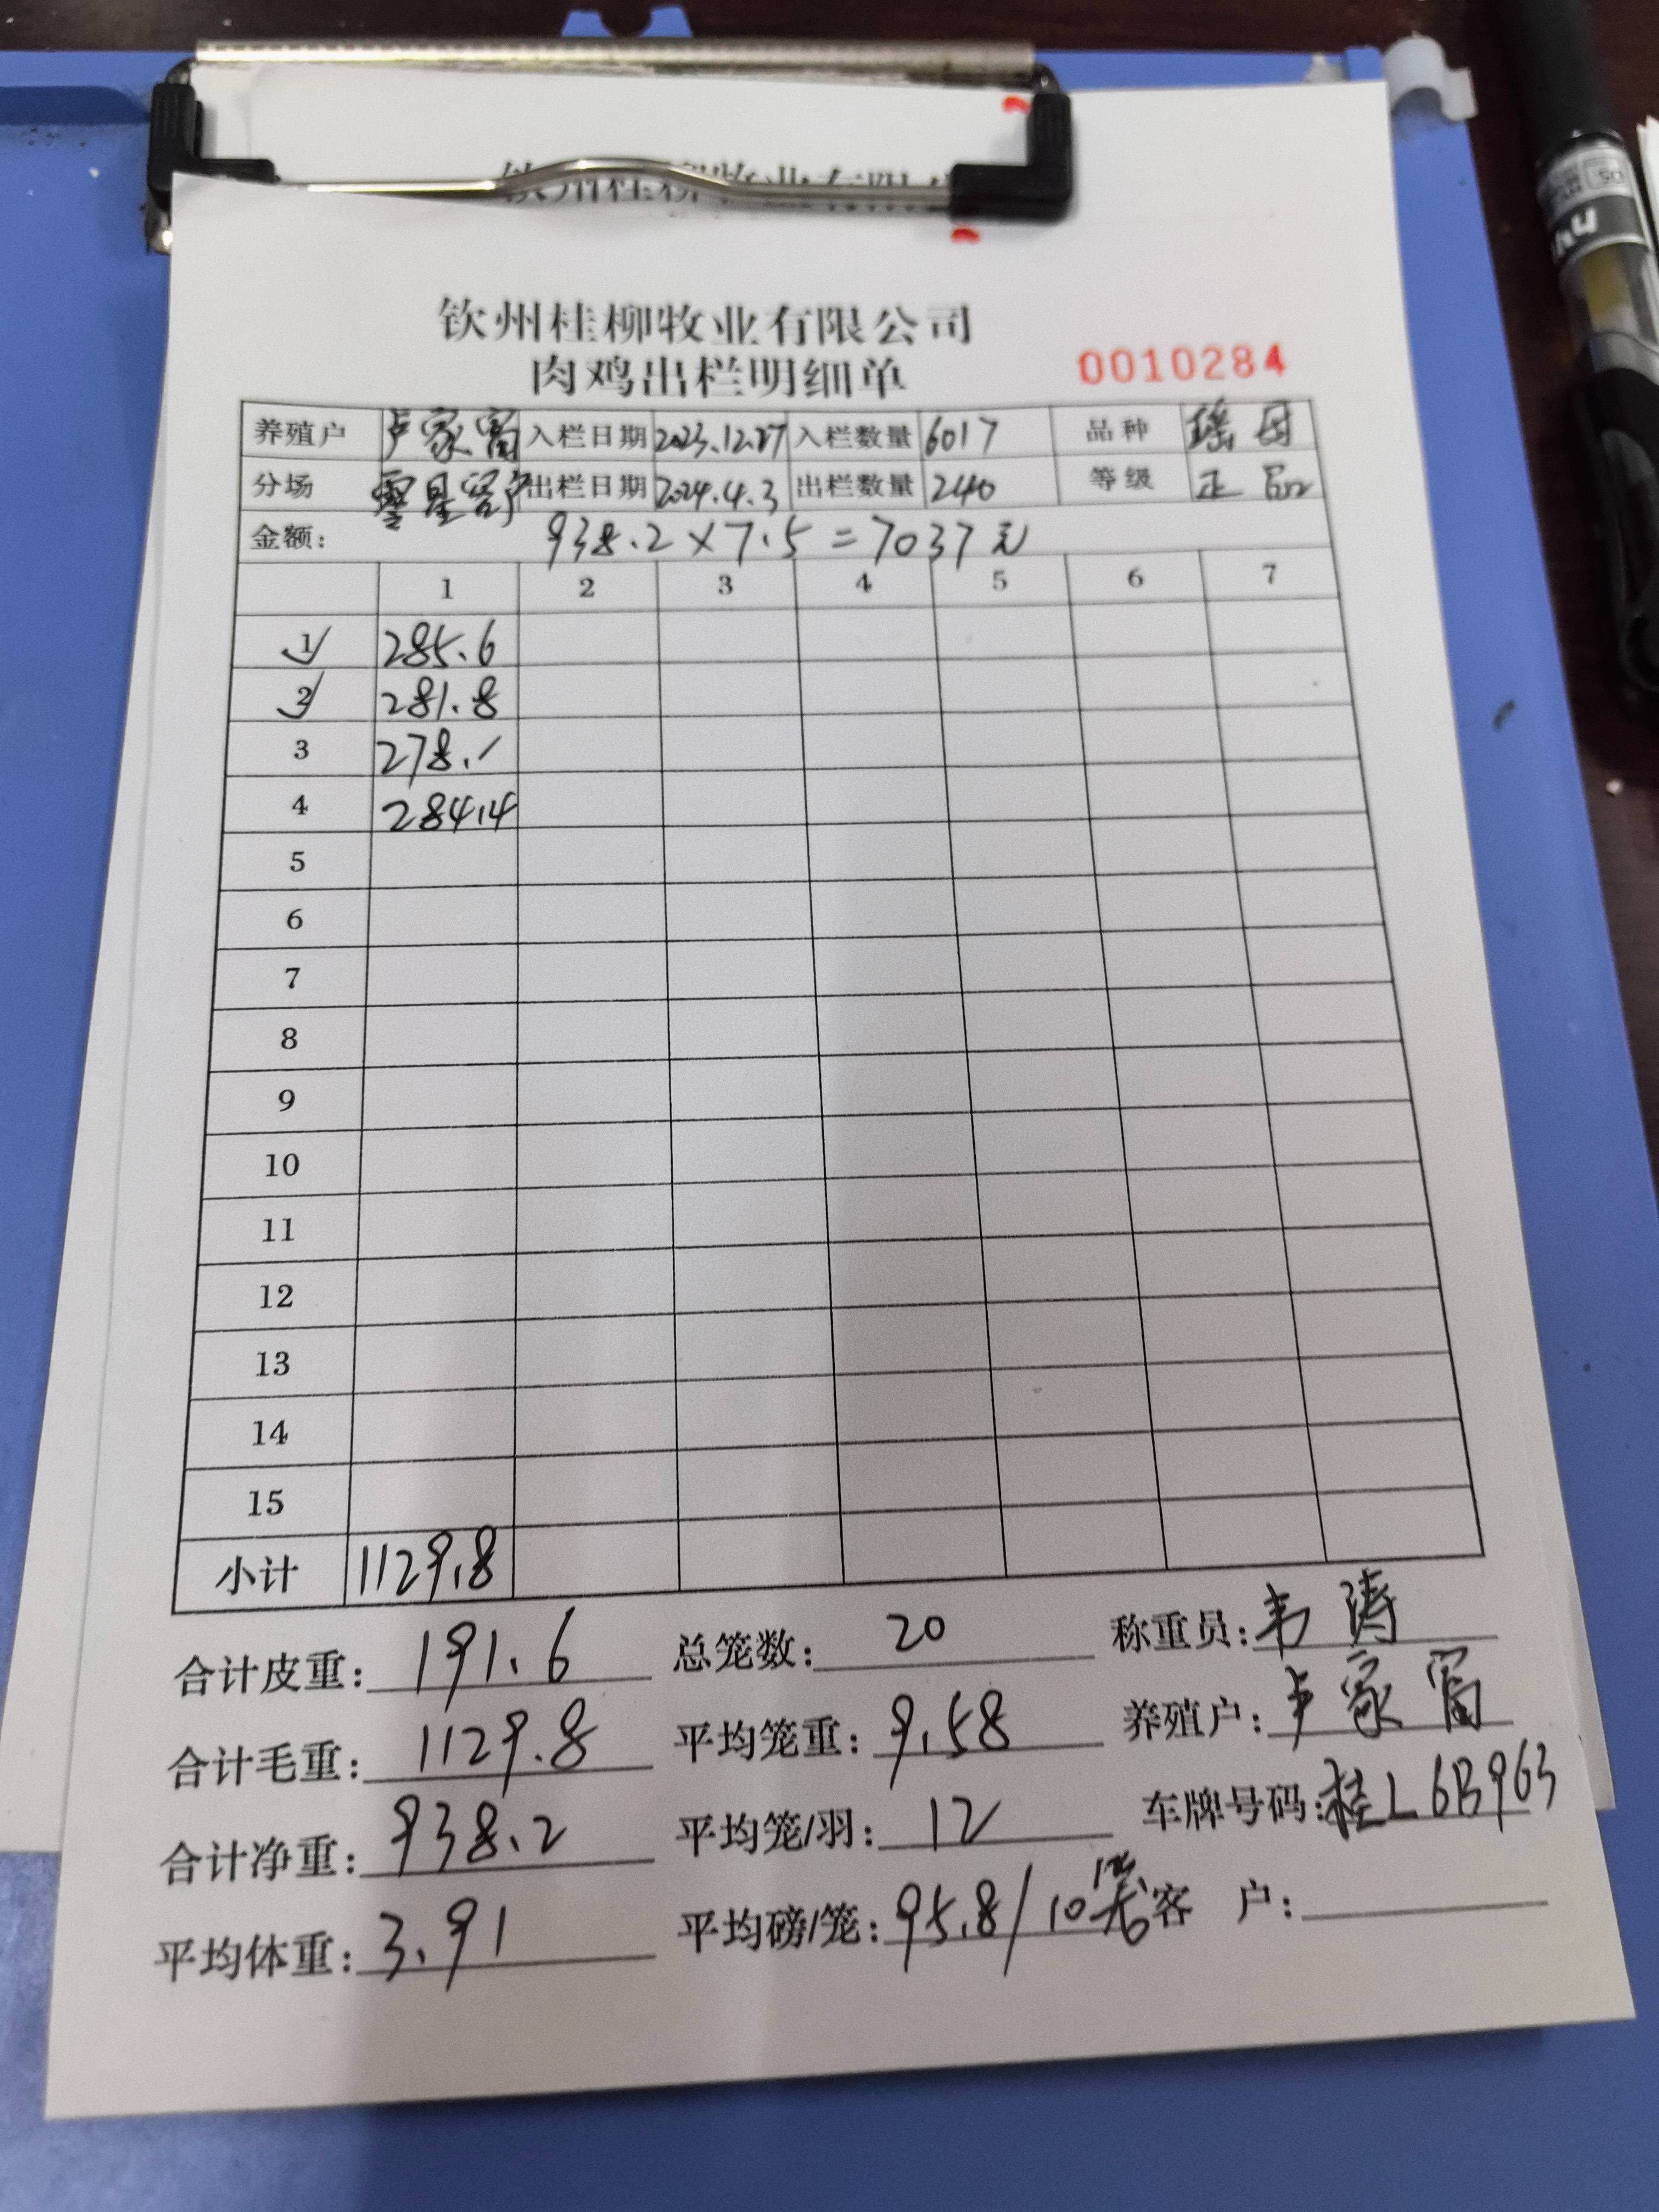 钦州桂柳牧业有限公司
肉鸡出栏明细单
0010284
养殖户 卢家富 入栏日期 2023.12.27 入栏数量 6017 品种 瑶母
分场 零星客户 出栏日期 2024.4.3 出栏数量 240 等级 正品
金额: 938.2×7.5=7037元
1 2 3 4 5 6 7
1 285.6
2 281.8
3 278.1
4 284.4
5
6
7
8
9
10
11
12
13
14
15
小计 1129.8
合计皮重: 191.6 总笼数: 20 称重员: 韦涛
合计毛重: 1129.8 平均笼重: 9.58 养殖户: 卢家富
合计净重: 938.2 平均笼/羽: 12 车牌号码: 桂L6B963
平均体重: 3.91 平均磅/笼: 95.8/10笼 客户: